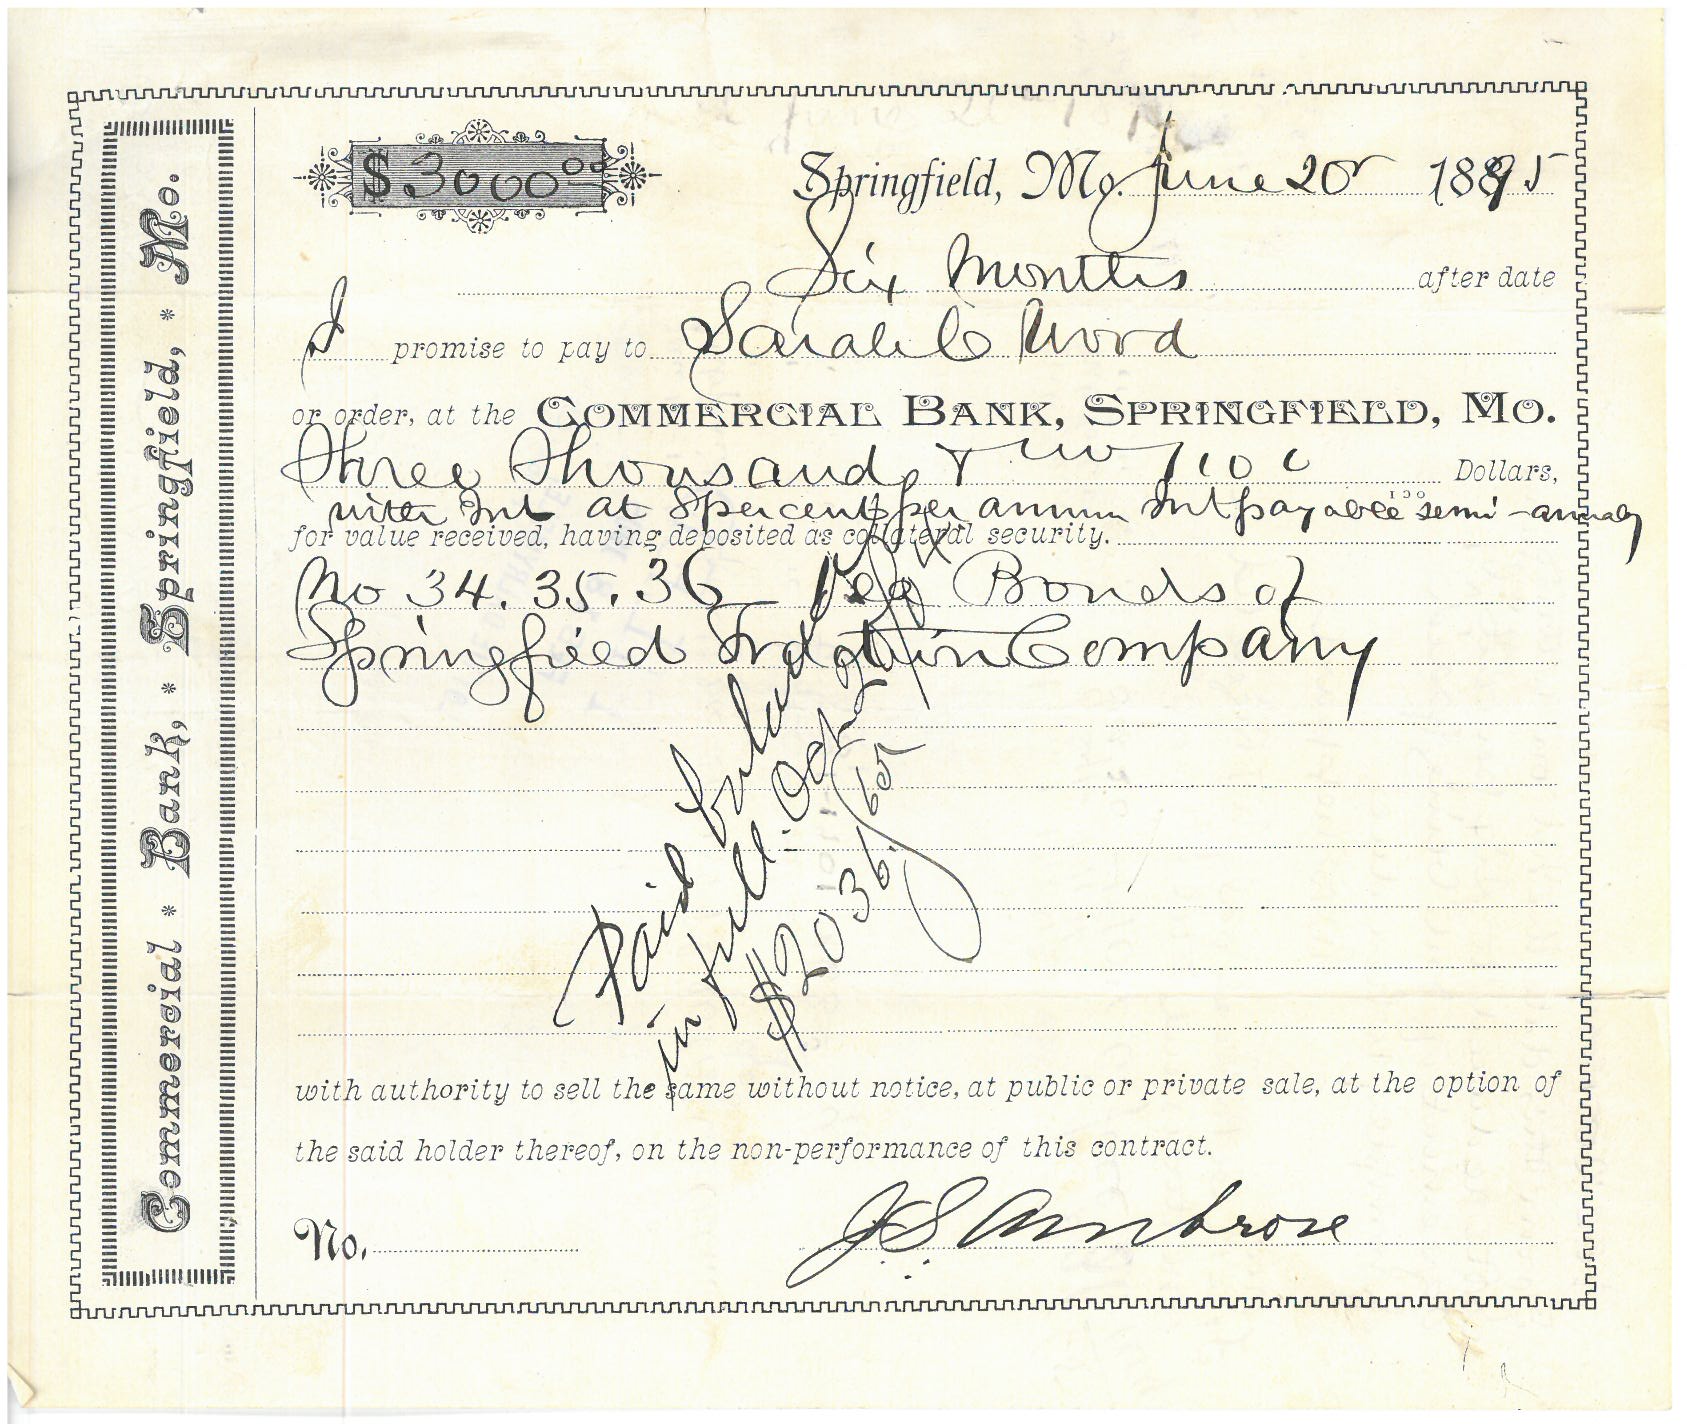 Commercial * Bank, * Springfield, * Mo.
$ 3000 00
Springfield, Mo. June 20 1895
Six Months after date
I promise to pay to Sarah C Word
or order, at the COMMERCIAL BANK, SPRINGFIELD, MO.
Three Thousand & no/100 Dollars,
with Int at 8 per cent per annum Int payable semi-annualy
for value received, having deposited as collateral security.
No 34. 35. 36 Bonds of
Springfield Traction Company
Paid balance
in full.
$2036.
with authority to sell the same without notice, at public or private sale, at the option of
the said holder thereof, on the non-performance of this contract.
No.
J S Ambrose